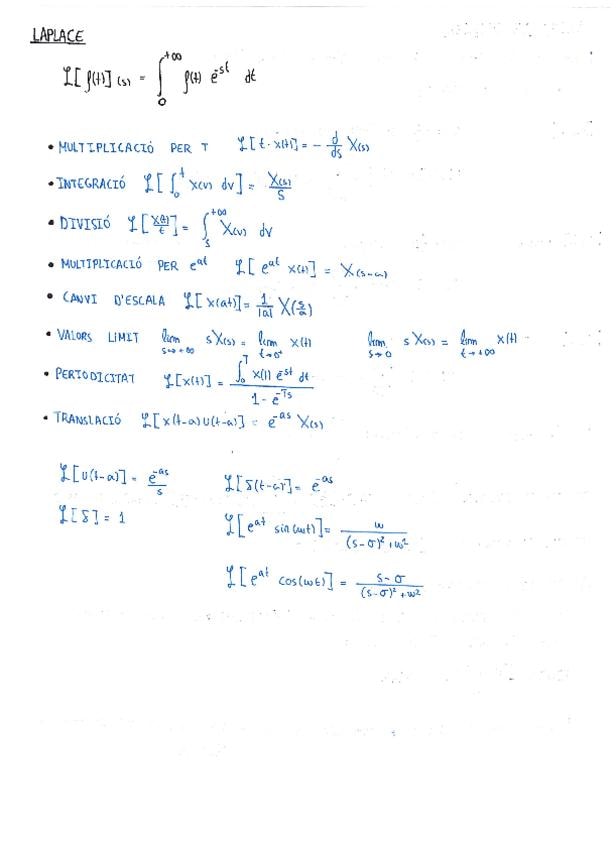 LAPLACE
ℒ[f(t)](s) = ∫₀^{+∞} f(t) e^{-st} dt
• MULTIPLICACIÓ PER T ℒ[t·x(t)] = - d/ds X(s)
• INTEGRACIÓ ℒ[∫₀^t x(v) dv] = X(s)/s
• DIVISIÓ ℒ[x(t)/t] = ∫_s^{+∞} X(v) dv
• MULTIPLICACIÓ PER e^{at} ℒ[e^{at} x(t)] = X(s-a)
• CANVI D'ESCALA ℒ[x(at)] = 1/|a| X(s/a)
• VALORS LIMIT lim_{s→+∞} sX(s) = lim_{t→0⁺} x(t) lim_{s→0} sX(s) = lim_{t→+∞} x(t)
• PERIODICITAT ℒ[x(t)] = ∫₀^T x(t) e^{-st} dt / 1 - e^{-Ts}
• TRANSLACIÓ ℒ[x(t-a)u(t-a)] = e^{-as} X(s)
ℒ[u(t-a)] = e^{-as}/s ℒ[δ(t-a)] = e^{-as}
ℒ[δ] = 1 ℒ[e^{at} sin(ωt)] = ω/(s-σ)²+ω²
ℒ[e^{at} cos(ωt)] = s-σ/(s-σ)²+ω²